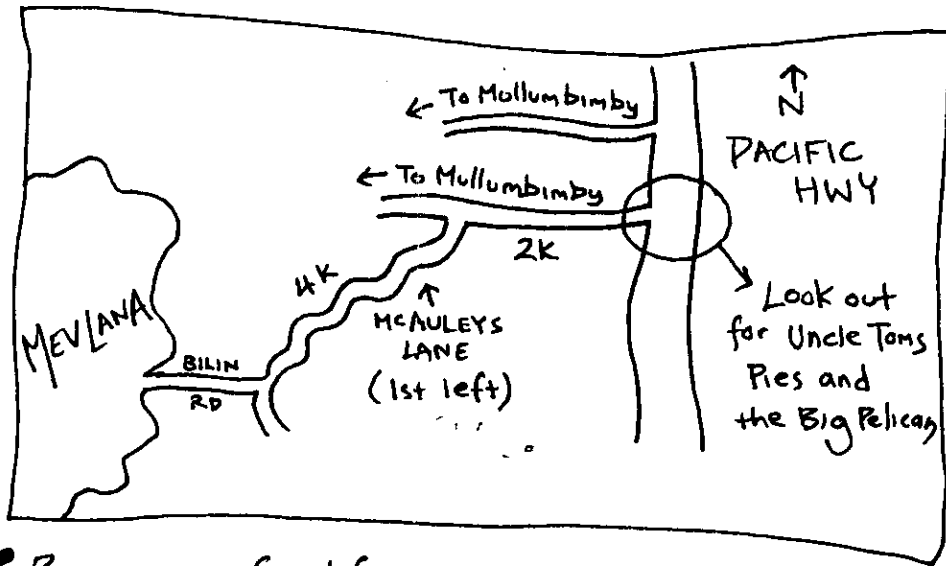 ← To Mullumbimby
↑
N
PACIFIC
HWY
← To Mullumbimby
2K
4K
↑
MCAULEYS
LANE
(1st left)
MEVLANA
BILIN
RD
Look out
for Uncle Toms
Pies and
the Big Pelican